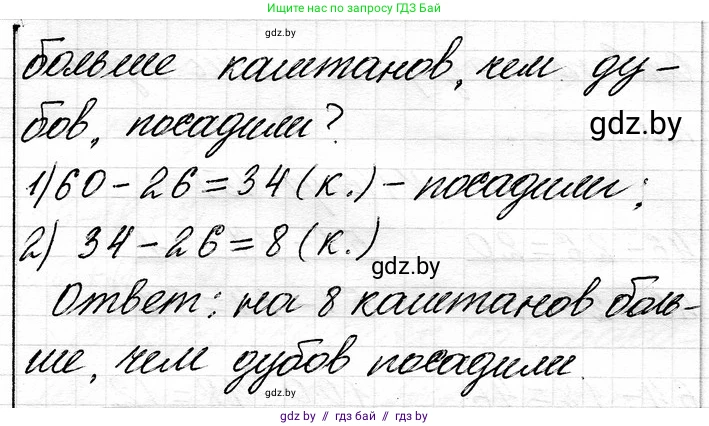 Ищите нас по запросу ГДЗ Бай
gdz.by
больше каштанов, чем ду-
бов, посадили?
gdz.by
1) 60 - 26 = 34 (к.) - посадили;
2) 34 - 26 = 8 (к.)
gdz.by
Ответ: на 8 каштанов боль-
ше, чем дубов посадили.
gdz.by
gdz.by // гдз бай // gdz.by